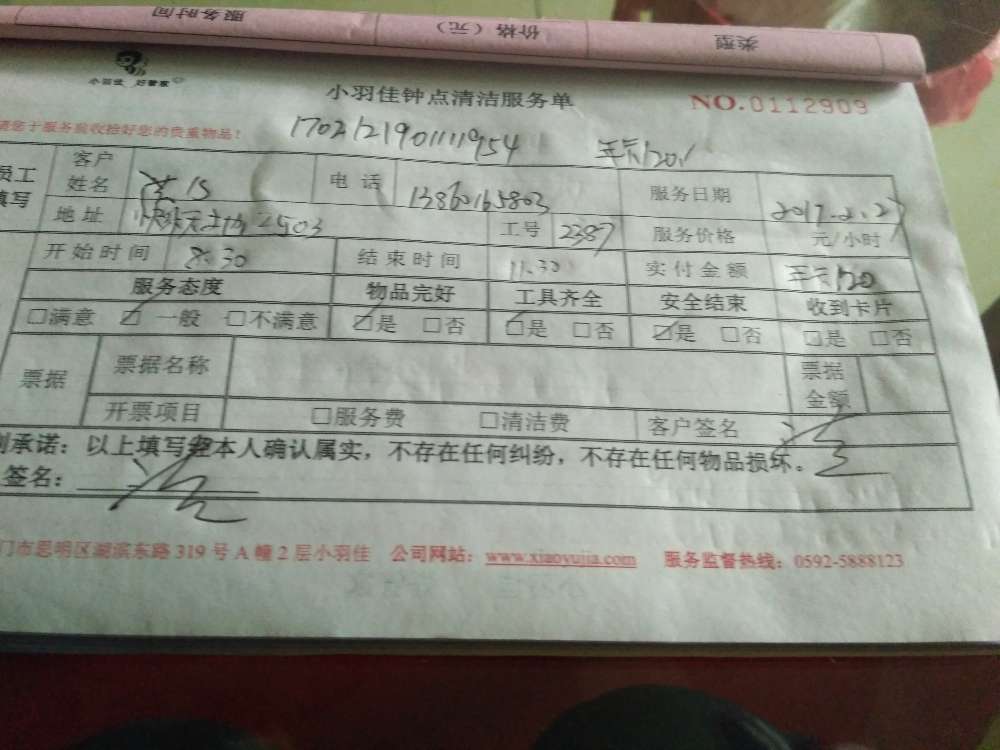 服务时间 价格（元） 类型
小羽佳 好管家
小羽佳钟点清洁服务单 NO.0112909
请您于服务前收拾好您的贵重物品！ 170212190111954
员工填写 客户姓名 电话 13860165803 服务日期 2017.2.27
地址 2503 工号 2387 服务价格 元/小时
开始时间 8:30 结束时间 11.30 实付金额 120
服务态度 物品完好 工具齐全 安全结束 收到卡片
□满意 ☑一般 □不满意 ☑是 □否 ☑是 □否 ☑是 □否 □是 □否
票据 票据名称 票据金额
开票项目 □服务费 □清洁费 客户签名
承诺：以上填写经本人确认属实，不存在任何纠纷，不存在任何物品损坏。
签名：
门市思明区湖滨东路319号A幢2层小羽佳 公司网站：www.xiaoyujia.com 服务监督热线：0592-5888123